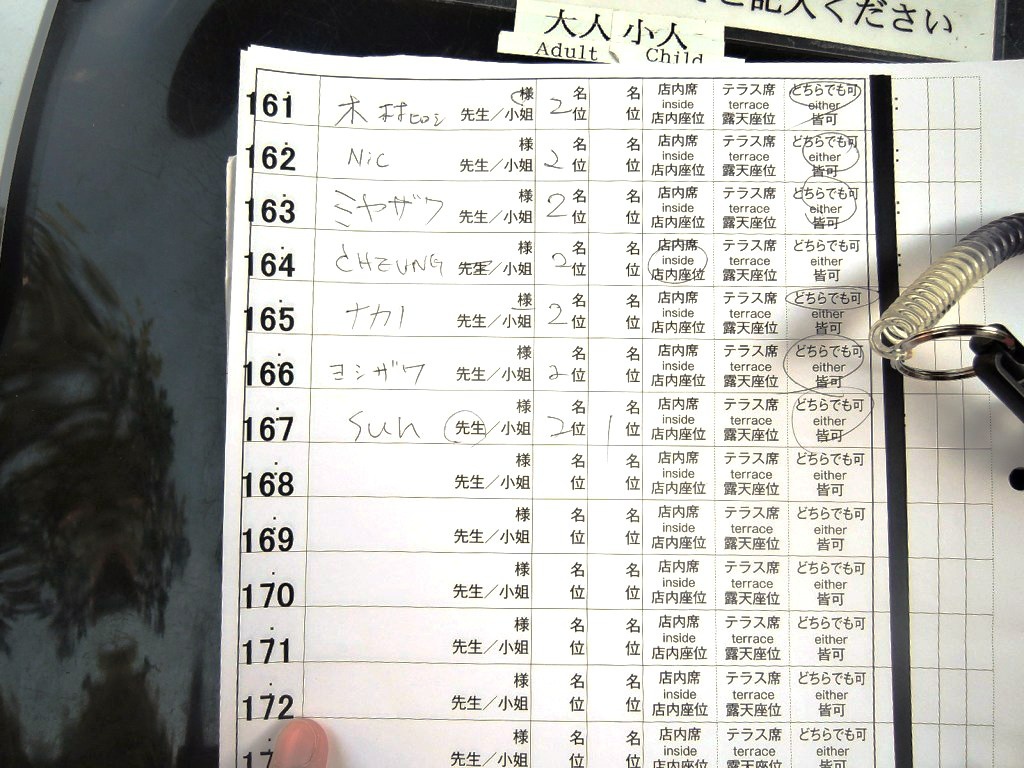 ご記入ください
大人 小人
Adult Child
161 木村ヒロシ 様 先生／小姐 2 名位 名位 店内席 inside 店内座位 テラス席 terrace 露天座位 どちらでも可 either 皆可 :
162 Nic 様 先生／小姐 2 名位 名位 店内席 inside 店内座位 テラス席 terrace 露天座位 どちらでも可 either 皆可 :
163 ミヤザワ 様 先生／小姐 2 名位 名位 店内席 inside 店内座位 テラス席 terrace 露天座位 どちらでも可 either 皆可 :
164 CHEUNG 様 先生／小姐 2 名位 名位 店内席 inside 店内座位 テラス席 terrace 露天座位 どちらでも可 either 皆可
165 ナカノ 様 先生／小姐 2 名位 名位 店内席 inside 店内座位 テラス席 terrace 露天座位 どちらでも可 either 皆可
166 ヨシザワ 様 先生／小姐 2 名位 名位 店内席 inside 店内座位 テラス席 terrace 露天座位 どちらでも可 either 皆可
167 Sun 様 先生／小姐 2 名位 1 名位 店内席 inside 店内座位 テラス席 terrace 露天座位 どちらでも可 either 皆可
168 様 先生／小姐 名位 名位 店内席 inside 店内座位 テラス席 terrace 露天座位 どちらでも可 either 皆可
169 様 先生／小姐 名位 名位 店内席 inside 店内座位 テラス席 terrace 露天座位 どちらでも可 either 皆可
170 様 先生／小姐 名位 名位 店内席 inside 店内座位 テラス席 terrace 露天座位 どちらでも可 either 皆可
171 様 先生／小姐 名位 名位 店内席 inside 店内座位 テラス席 terrace 露天座位 どちらでも可 either 皆可
172 様 先生／小姐 名位 名位 店内席 inside 店内座位 テラス席 terrace 露天座位 どちらでも可 either 皆可
17 様 先生／小姐 名位 名位 店内席 inside 店内座位 テラス席 terrace 露天座位 どちらでも可 either 皆可